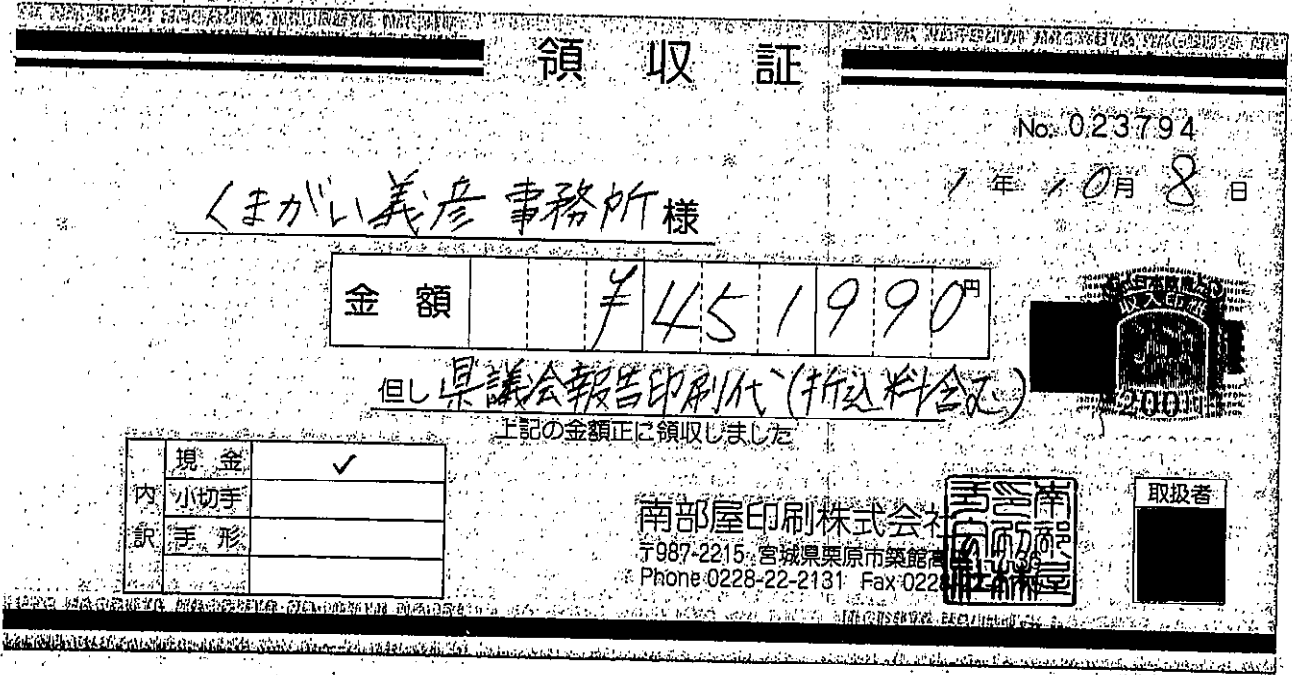 領収証
No. 023794
1年10月8日
くまがい義彦事務所様
金額 ¥451990円
但し県議会報告印刷代(折込料含む)
上記の金額正に領収しました
収入印紙
200
内訳
現金 ✓
小切手
手形
南部屋印刷株式会社
〒987-2215 宮城県栗原市築館高
Phone 0228-22-2131 Fax 0228
南部屋印刷株式会社
取扱者